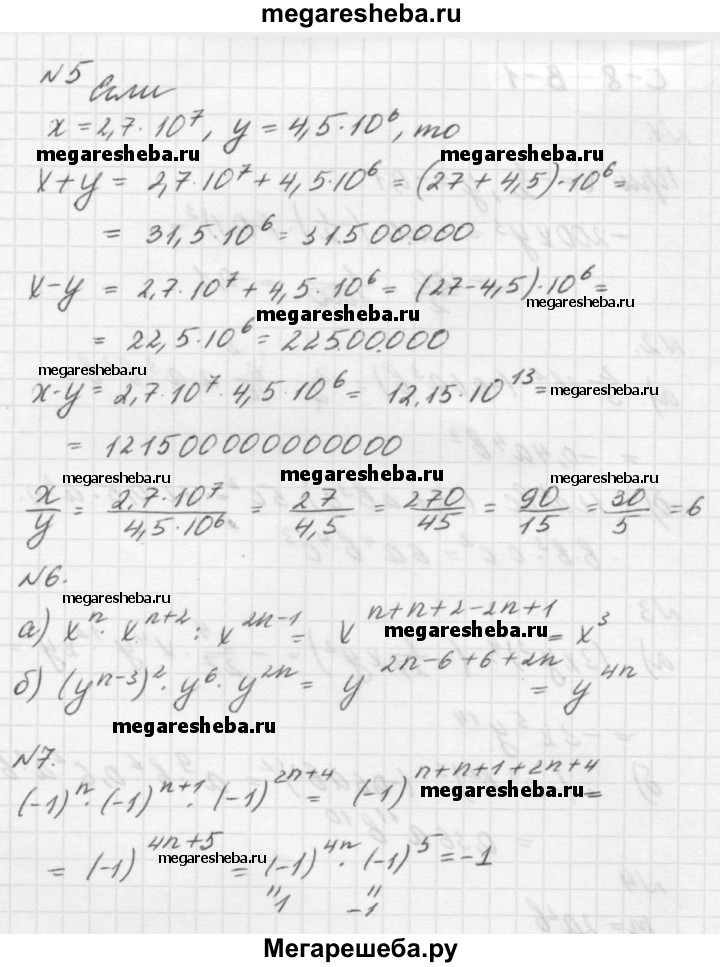 megaresheba.ru
№5 Если
x = 2,7 · 10⁷, y = 4,5 · 10⁶, то
megaresheba.ru megaresheba.ru
x + y = 2,7 · 10⁷ + 4,5 · 10⁶ = (27 + 4,5) · 10⁶ =
= 31,5 · 10⁶ = 31500000
x − y = 2,7 · 10⁷ + 4,5 · 10⁶ = (27 − 4,5) · 10⁶ =
megaresheba.ru megaresheba.ru
= 22,5 · 10⁶ = 22500000
megaresheba.ru
x · y = 2,7 · 10⁷ · 4,5 · 10⁶ = 12,15 · 10¹³ = megaresheba.ru
= 121500000000000
megaresheba.ru megaresheba.ru megaresheba.ru
x/y = 2,7 · 10⁷ / 4,5 · 10⁶ = 27/4,5 = 270/45 = 90/15 = 30/5 = 6
№6.
megaresheba.ru
а) xⁿ · xⁿ⁺² : x²ⁿ⁻¹ = x^(n+n+2−2n+1) = x³
megaresheba.ru
б) (yⁿ⁻³)² · y⁶ · y²ⁿ = y^(2n−6+6+2n) = y⁴ⁿ
megaresheba.ru
№7.
(−1)ⁿ · (−1)ⁿ⁺¹ · (−1)²ⁿ⁺⁴ = (−1)^(n+n+1+2n+4) =
megaresheba.ru
= (−1)⁴ⁿ⁺⁵ = (−1)⁴ⁿ · (−1)⁵ = −1
megaresheba.ru megaresheba.ru
" "
1 −1
Мегарешеба.ру